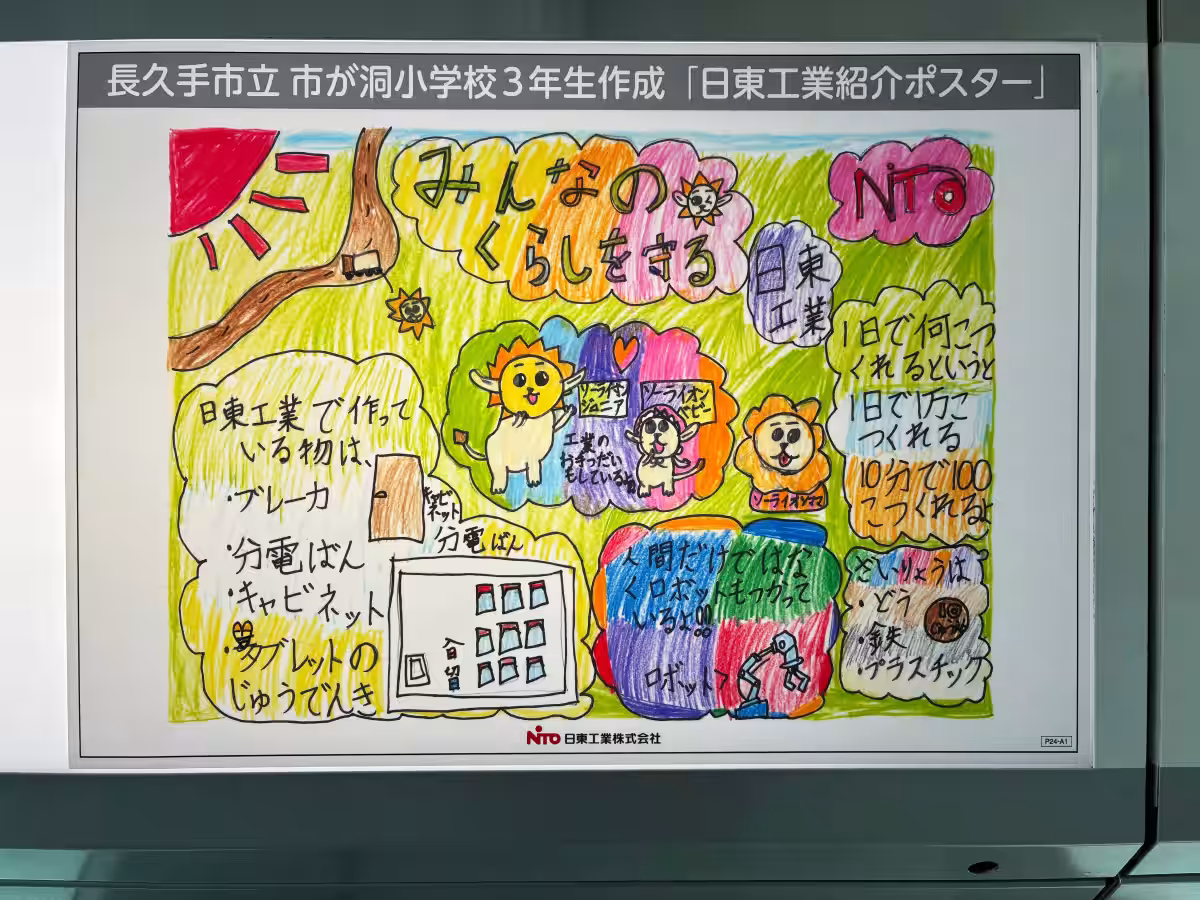 長久手市立 市が洞小学校3年生作成「日東工業紹介ポスター」
みんなの
くらしをきる
NITO
日東
工業
1日で何こつ
くれるというと
1日で1万こ
つくれる
10分で100
こつくれるよ
ソーライオン
ジュニア
ソーライオン
ベビー
工業の
おてつだい
もしているよ
ソーライオンママ
日東工業で作って
いる物は、
・ブレーカ
・分電ばん
・キャビネット
・タブレットの
じゅうでんき
キャビ
ネット
分電ばん
人間だけではな
くロボットもつかって
いるよ!!
ロボット
ざいりょうは
・どう
・鉄
・プラスチック
NITO 日東工業株式会社
P24-A1